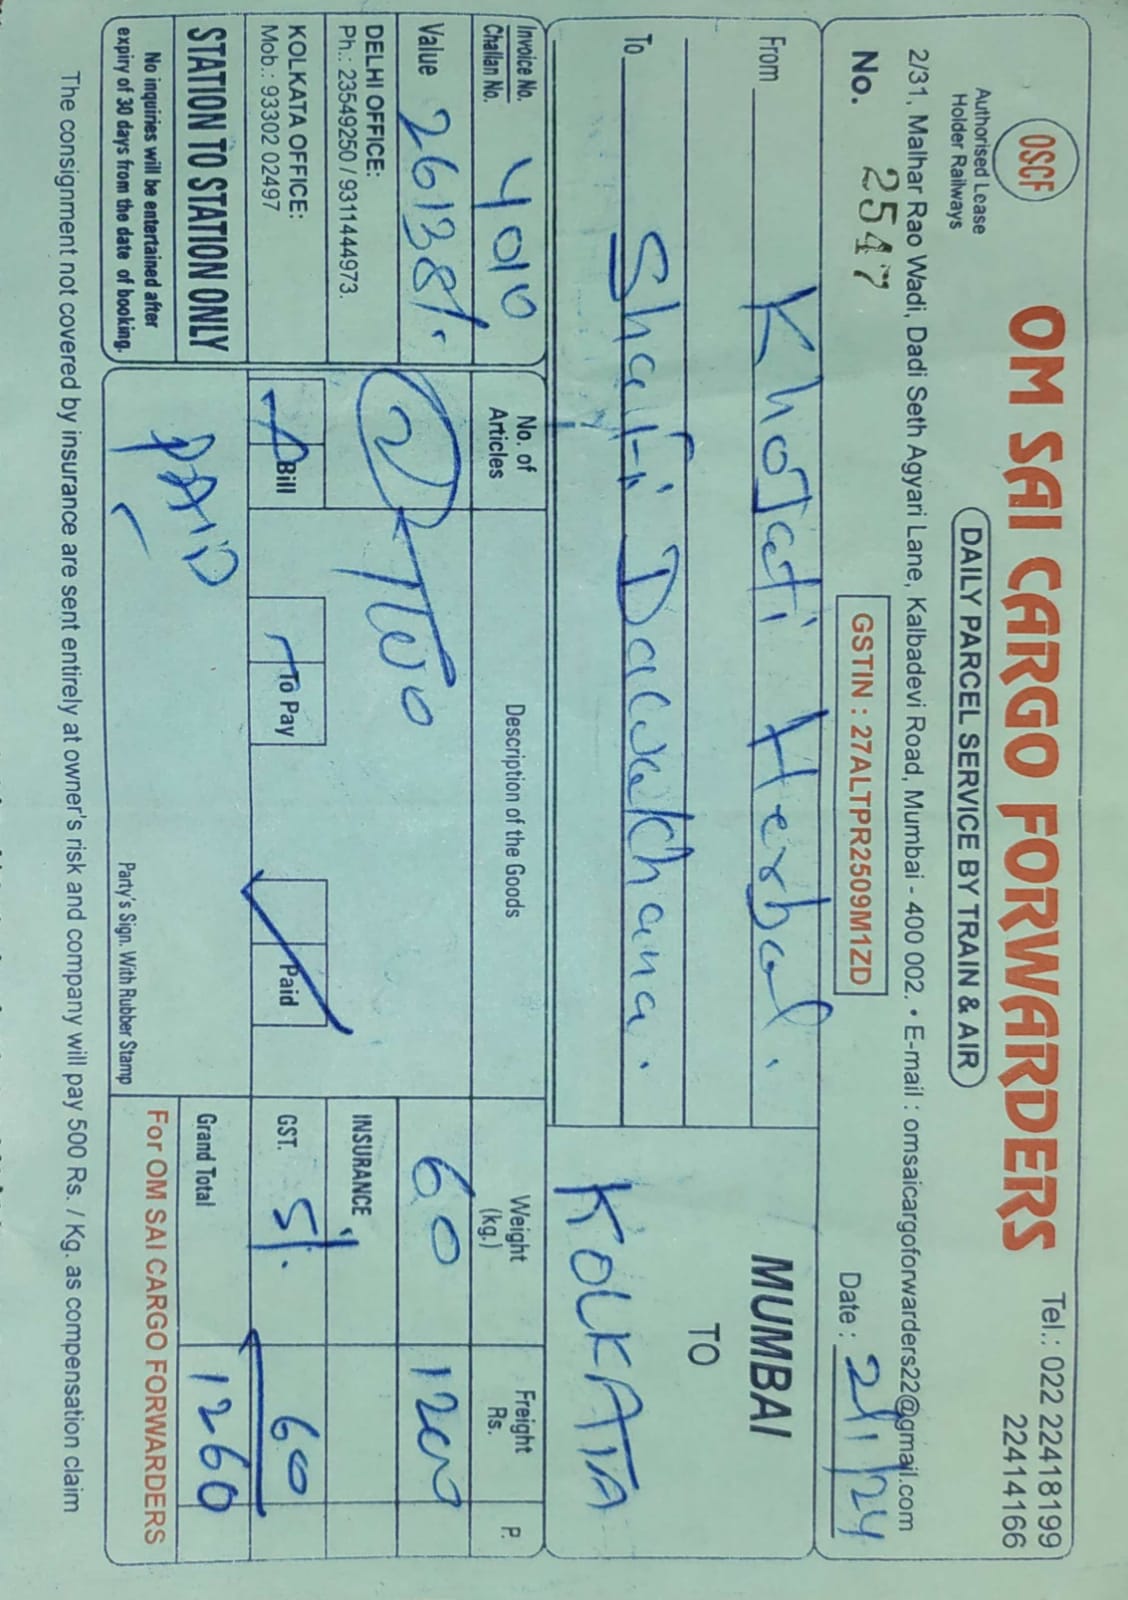 OSCF
Authorised Lease
Holder Railways
OM SAI CARGO FORWARDERS
Tel.: 022 22418199
22414166
DAILY PARCEL SERVICE BY TRAIN & AIR
2/31, Malhar Rao Wadi, Dadi Seth Agyari Lane, Kalbadevi Road, Mumbai - 400 002. • E-mail : omsaicargoforwarders22@gmail.com
No. 2547
GSTIN : 27ALTPR2509M1ZD
Date : 2/1/24
From Khojati Herbal.
MUMBAI
TO
To Shakti Dawakhana.
KOLKATA
Invoice No.
Challan No. 4010
No. of
Articles
Description of the Goods
Weight
(kg.)
Freight
Rs.
P.
Value 26138/.
2 TWO
60
1200
DELHI OFFICE:
Ph.: 23549250 / 9311444973.
INSURANCE
KOLKATA OFFICE:
Mob.: 93302 02497
Bill
To Pay
Paid
GST. 5/.
60
STATION TO STATION ONLY
PAID
Grand Total
1260
No inquiries will be entertained after
expiry of 30 days from the date of booking.
Party's Sign. With Rubber Stamp
For OM SAI CARGO FORWARDERS
The consignment not covered by insurance are sent entirely at owner's risk and company will pay 500 Rs. / Kg. as compensation claim